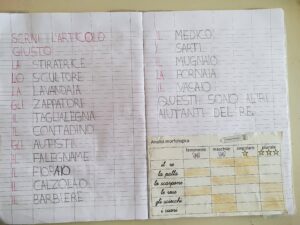 SCRIVI L'ARTICOLO
GIUSTO
LA STIRATRICE
LO SCULTORE
LA LAVANDAIA
GLI ZAPPATORI
IL TAGLIALEGNA
IL CONTADINO
GLI AUTISTI
IL FALEGNAME
IL FIORAIO
IL CALZOLAIO
IL BARBIERE
IL MEDICO
I SARTI
IL MUGNAIO
LA FORNAIA
IL VASAIO
QUESTI SONO ALTRI
AIUTANTI DEL RE.
Analisi morfologica
femminile maschile singolare plurale
il re
la palla
lo scarpone
le rose
gli gnocchi
i cuori